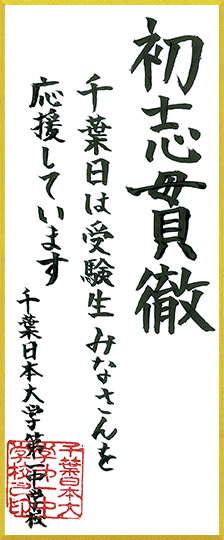 初志貫徹
千葉日は受験生みなさんを
応援しています
千葉日本大学第一中学校
千葉日本大
学第一中
学校之印